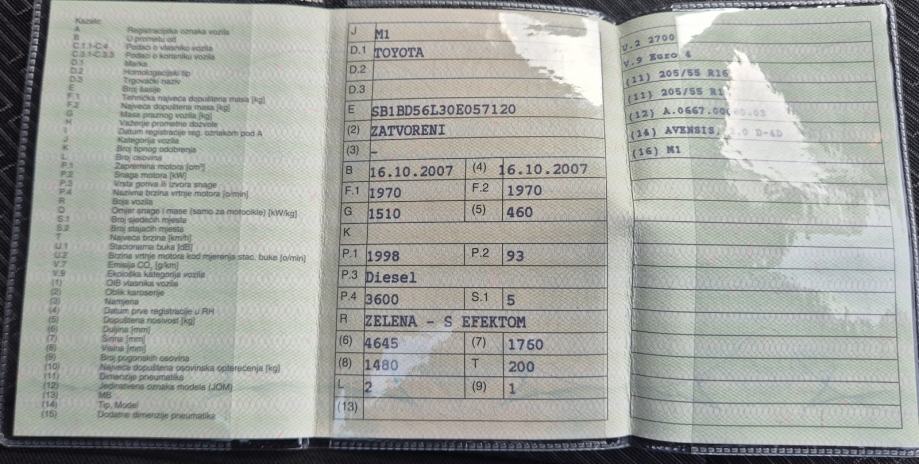 Kazalo:
A Registracijska oznaka vozila
B U prometu od
C.1.1-C.4 Podaci o vlasniku vozila
C.3.1-C.3.3 Podaci o korisniku vozila
D.1 Marka
D.2 Homologacijski tip
D.3 Trgovački naziv
E Broj šasije
F.1 Tehnička najveća dopuštena masa [kg]
F.2 Najveća dopuštena masa [kg]
G Masa praznog vozila [kg]
H Važenje prometne dozvole
I Datum registracije reg. oznakom pod A
J Kategorija vozila
K Broj tipnog odobrenja
L Broj osovina
P.1 Zapremina motora [cm³]
P.2 Snaga motora [kW]
P.3 Vrsta goriva ili izvora snage
P.4 Nazivna brzina vrtnje motora [o/min]
R Boja vozila
Q Omjer snage i mase (samo za motocikle) [kW/kg]
S.1 Broj sjedećih mjesta
S.2 Broj stajaćih mjesta
T Najveća brzina [km/h]
U.1 Stacionarna buka [dB]
U.2 Brzina vrtnje motora kod mjerenja stac. buke [o/min]
V.7 Emisija CO₂ [g/km]
V.9 Ekološka kategorija vozila
(1) OIB vlasnika vozila
(2) Oblik karoserije
(3) Namjena
(4) Datum prve registracije u RH
(5) Dopuštena nosivost [kg]
(6) Duljina [mm]
(7) Širina [mm]
(8) Visina [mm]
(9) Broj pogonskih osovina
(10) Najveća dopuštena osovinska opterećenja [kg]
(11) Dimenzije pneumatika
(12) Jedinstvena oznaka modela (JOM)
(13) MB
(14) Tip, Model
(15) Dodatne dimenzije pneumatika
J M1
D.1 TOYOTA
D.2
D.3
E SB1BD56L30E057120
(2) ZATVORENI
(3) -
B 16.10.2007 (4) 16.10.2007
F.1 1970 F.2 1970
G 1510 (5) 460
K
P.1 1998 P.2 93
P.3 Diesel
P.4 3600 S.1 5
R ZELENA - S EFEKTOM
(6) 4645 (7) 1760
(8) 1480 T 200
L 2 (9) 1
(13)
U.2 2700
V.9 Euro 4
(11) 205/55 R16
(11) 205/55 R1
(12) A.0667.00
(14) AVENSIS, 2.0 D-4D
(16) M1